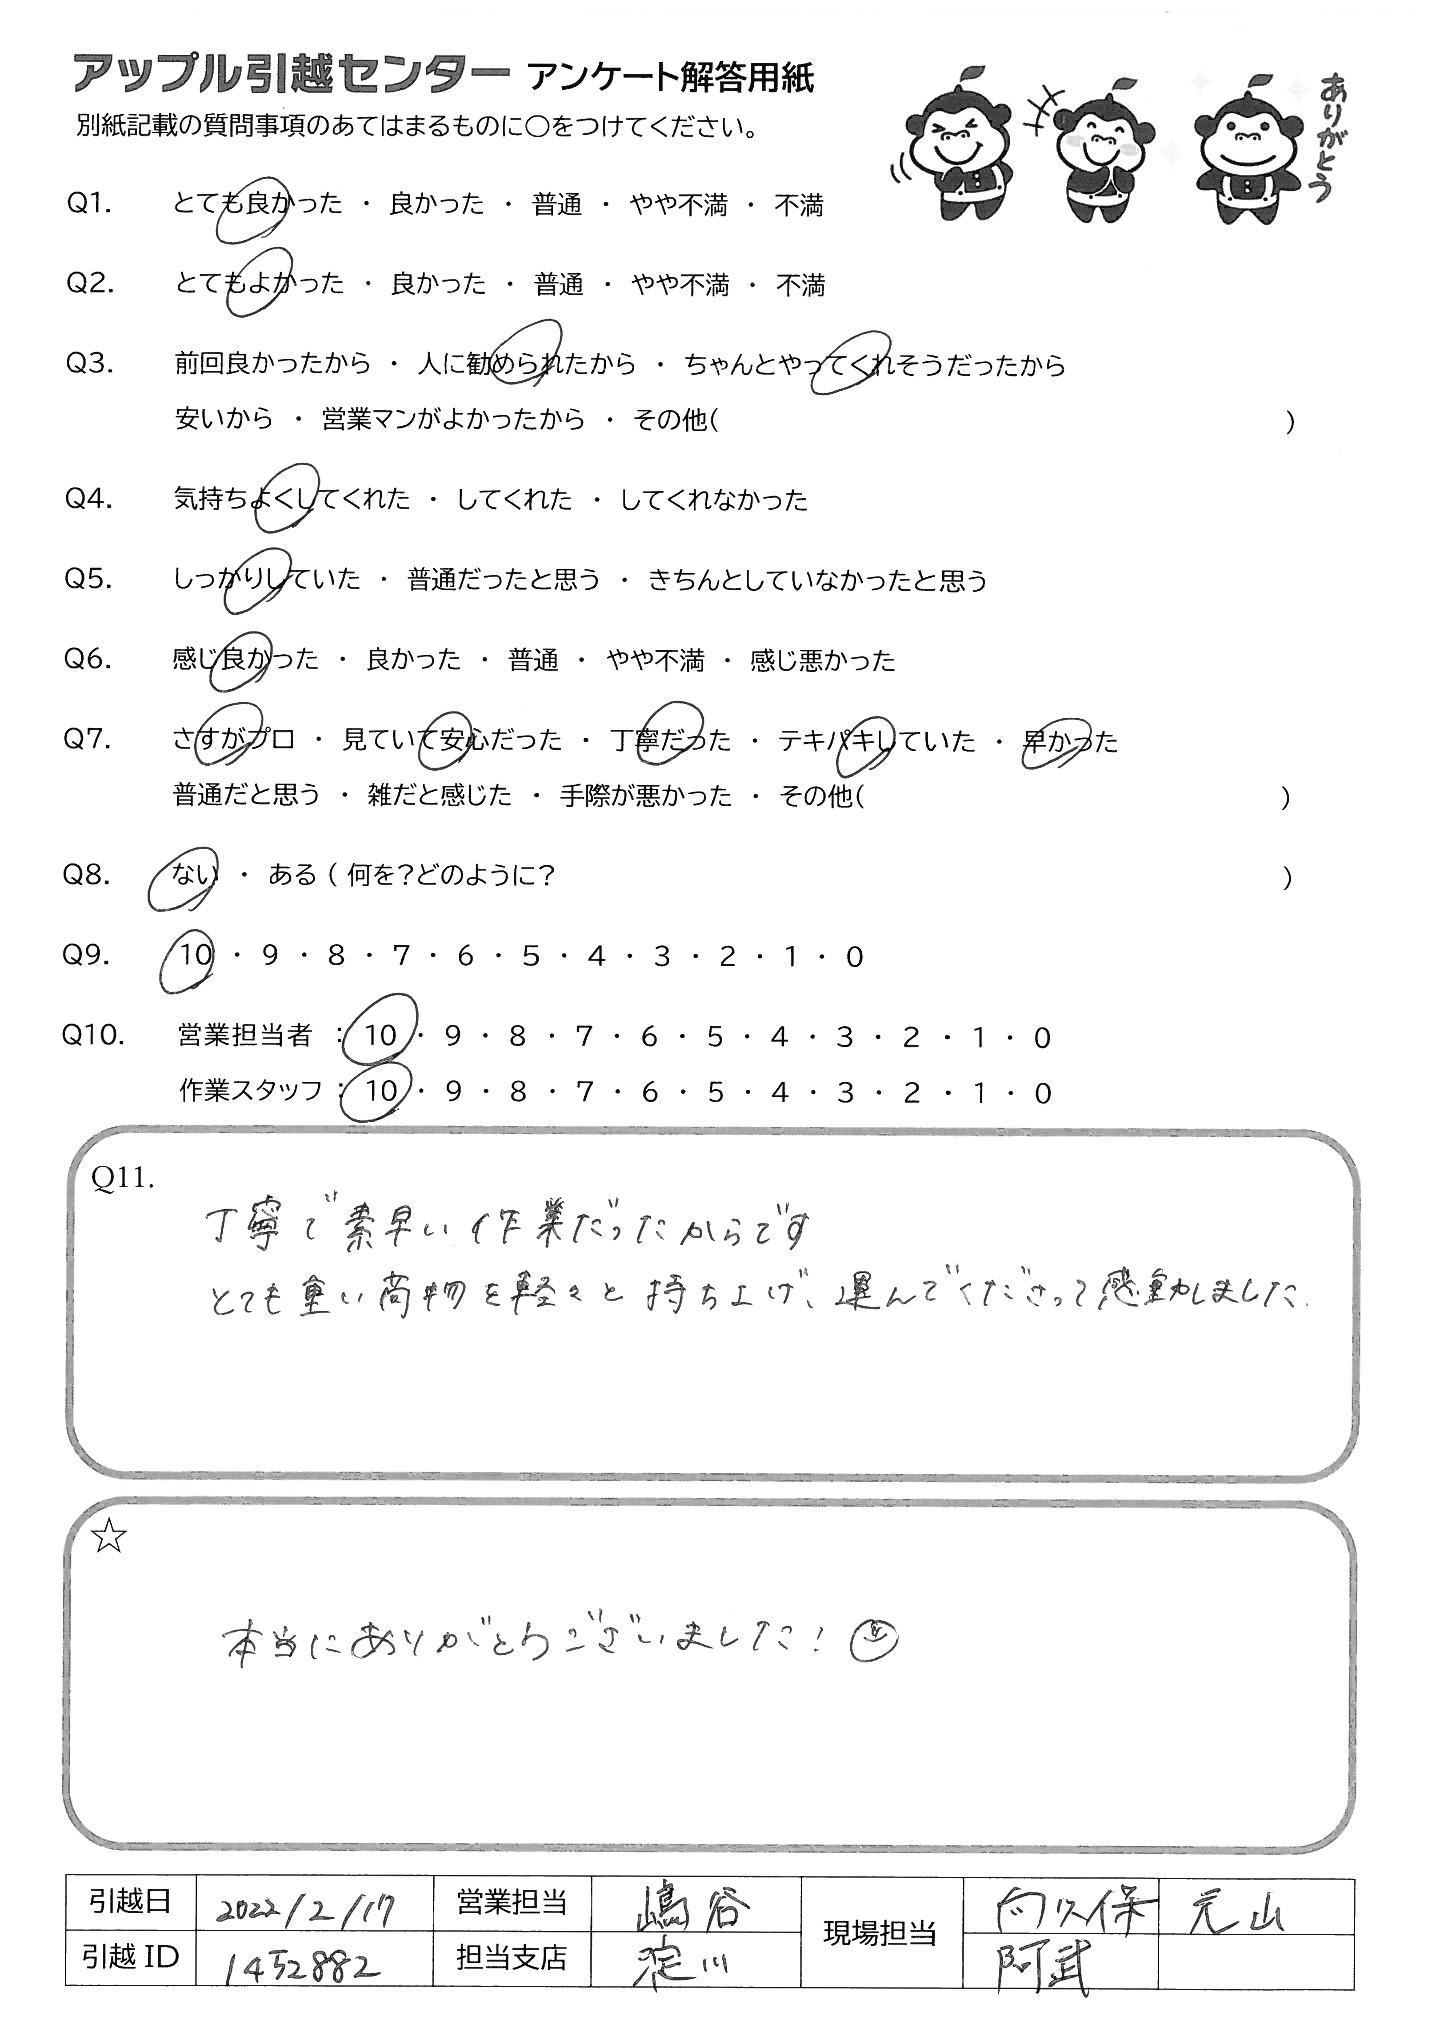 アップル引越センター アンケート解答用紙
ありがとう
別紙記載の質問事項のあてはまるものに○をつけてください。
Q1. とても良かった ・ 良かった ・ 普通 ・ やや不満 ・ 不満
Q2. とてもよかった ・ 良かった ・ 普通 ・ やや不満 ・ 不満
Q3. 前回良かったから ・ 人に勧められたから ・ ちゃんとやってくれそうだったから
安いから ・ 営業マンがよかったから ・ その他( )
Q4. 気持ちよくしてくれた ・ してくれた ・ してくれなかった
Q5. しっかりしていた ・ 普通だったと思う ・ きちんとしていなかったと思う
Q6. 感じ良かった ・ 良かった ・ 普通 ・ やや不満 ・ 感じ悪かった
Q7. さすがプロ ・ 見ていて安心だった ・ 丁寧だった ・ テキパキしていた ・ 早かった
普通だと思う ・ 雑だと感じた ・ 手際が悪かった ・ その他( )
Q8. ない ・ ある ( 何を?どのように? )
Q9. 10 ・ 9 ・ 8 ・ 7 ・ 6 ・ 5 ・ 4 ・ 3 ・ 2 ・ 1 ・ 0
Q10. 営業担当者 : 10 ・ 9 ・ 8 ・ 7 ・ 6 ・ 5 ・ 4 ・ 3 ・ 2 ・ 1 ・ 0
作業スタッフ : 10 ・ 9 ・ 8 ・ 7 ・ 6 ・ 5 ・ 4 ・ 3 ・ 2 ・ 1 ・ 0
Q11.
丁寧で素早い作業だったからです
とても重い荷物を軽々と持ち上げ、運んでくださって感動しました.
☆
本当にありがとうございました!
引越日 2022/2/17 営業担当 嶋谷 現場担当 向久保 元山
引越ID 1452882 担当支店 淀川 阿武